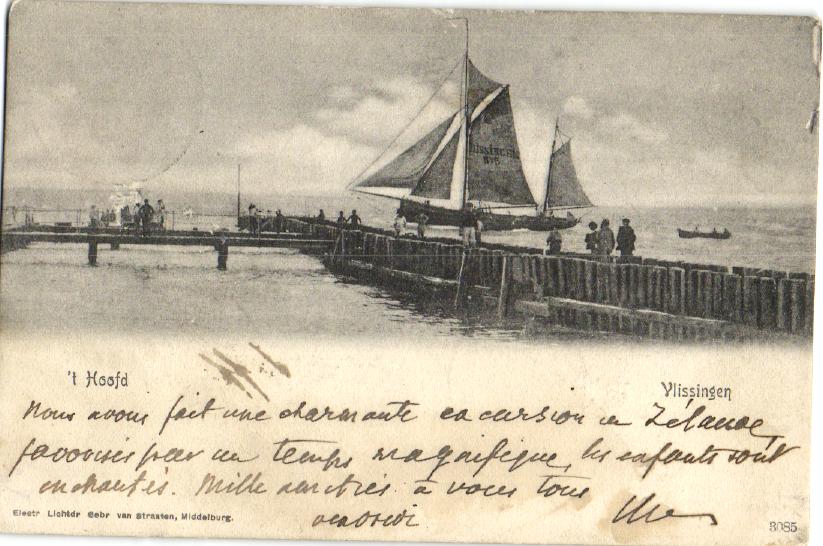 VLISSINGEN
't Hoofd
Vlissingen
Nous avons fait une charmante excursion en Zélande,
favorisés par un temps magnifique, les enfants sont
enchantés. Mille amitiés à vous tous
Electr Lichtdr Gebr van Straaten, Middelburg.
3085